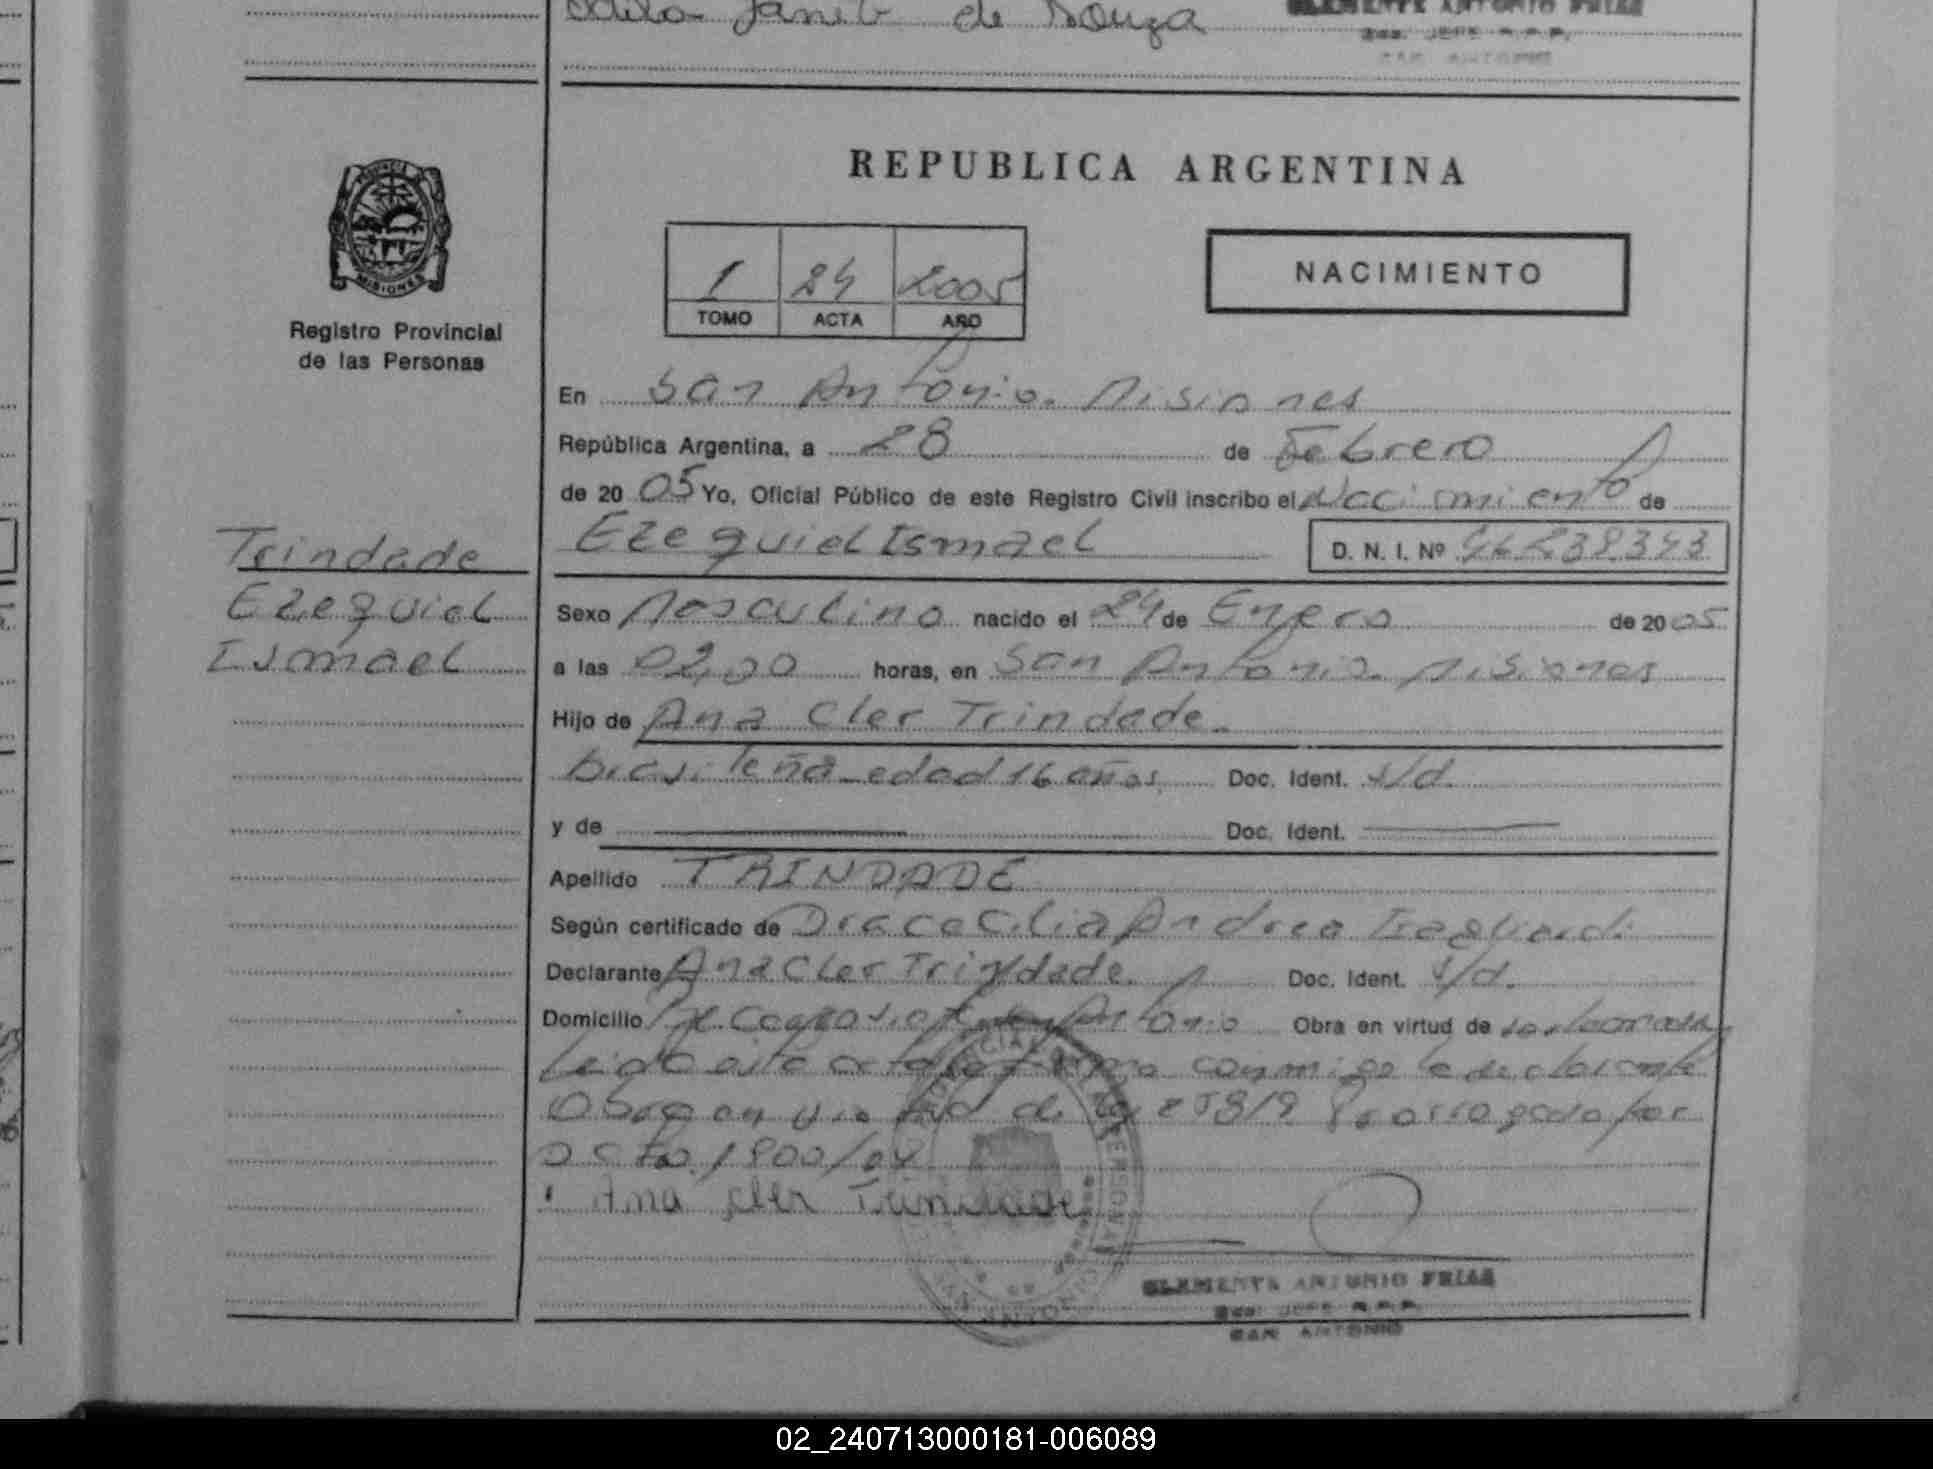 de Souza
CLEMENTE ANTONIO FRIAS
SAN ANTONIO
PROVINCIA
MISIONES
Registro Provincial
de las Personas
REPUBLICA ARGENTINA
1 24 2005
TOMO ACTA AÑO
NACIMIENTO
En San Antonio. Misiones
República Argentina, a 28 de Febrero
de 20 05 Yo, Oficial Público de este Registro Civil inscribo el Nacimiento de
Ezequiel Ismael D. N. I. Nº 46238343
Trindade
Ezequiel
Ismael
Sexo Masculino nacido el 24 de Enero de 20 05
a las 02,00 horas, en San Antonio. Misiones
Hijo de Ana Cler Trindade.
brasileña edad 16 años, Doc. Ident. s/d.
y de Doc. Ident.
Apellido TRINDADE
Según certificado de Dra Cecilia Andrea
Declarante Ana Cler Trindade. Doc. Ident. s/d.
Domicilio San Antonio Obra en virtud de
Leida esta acta la firma conmigo la declarante
Obra en virtud de Ley 25819 Prorrogado por
Dcto. 1900/04
Ana Cler Trindade
CLEMENTE ANTONIO FRIAS
SAN ANTONIO
SAN ANTONIO
02_240713000181-006089